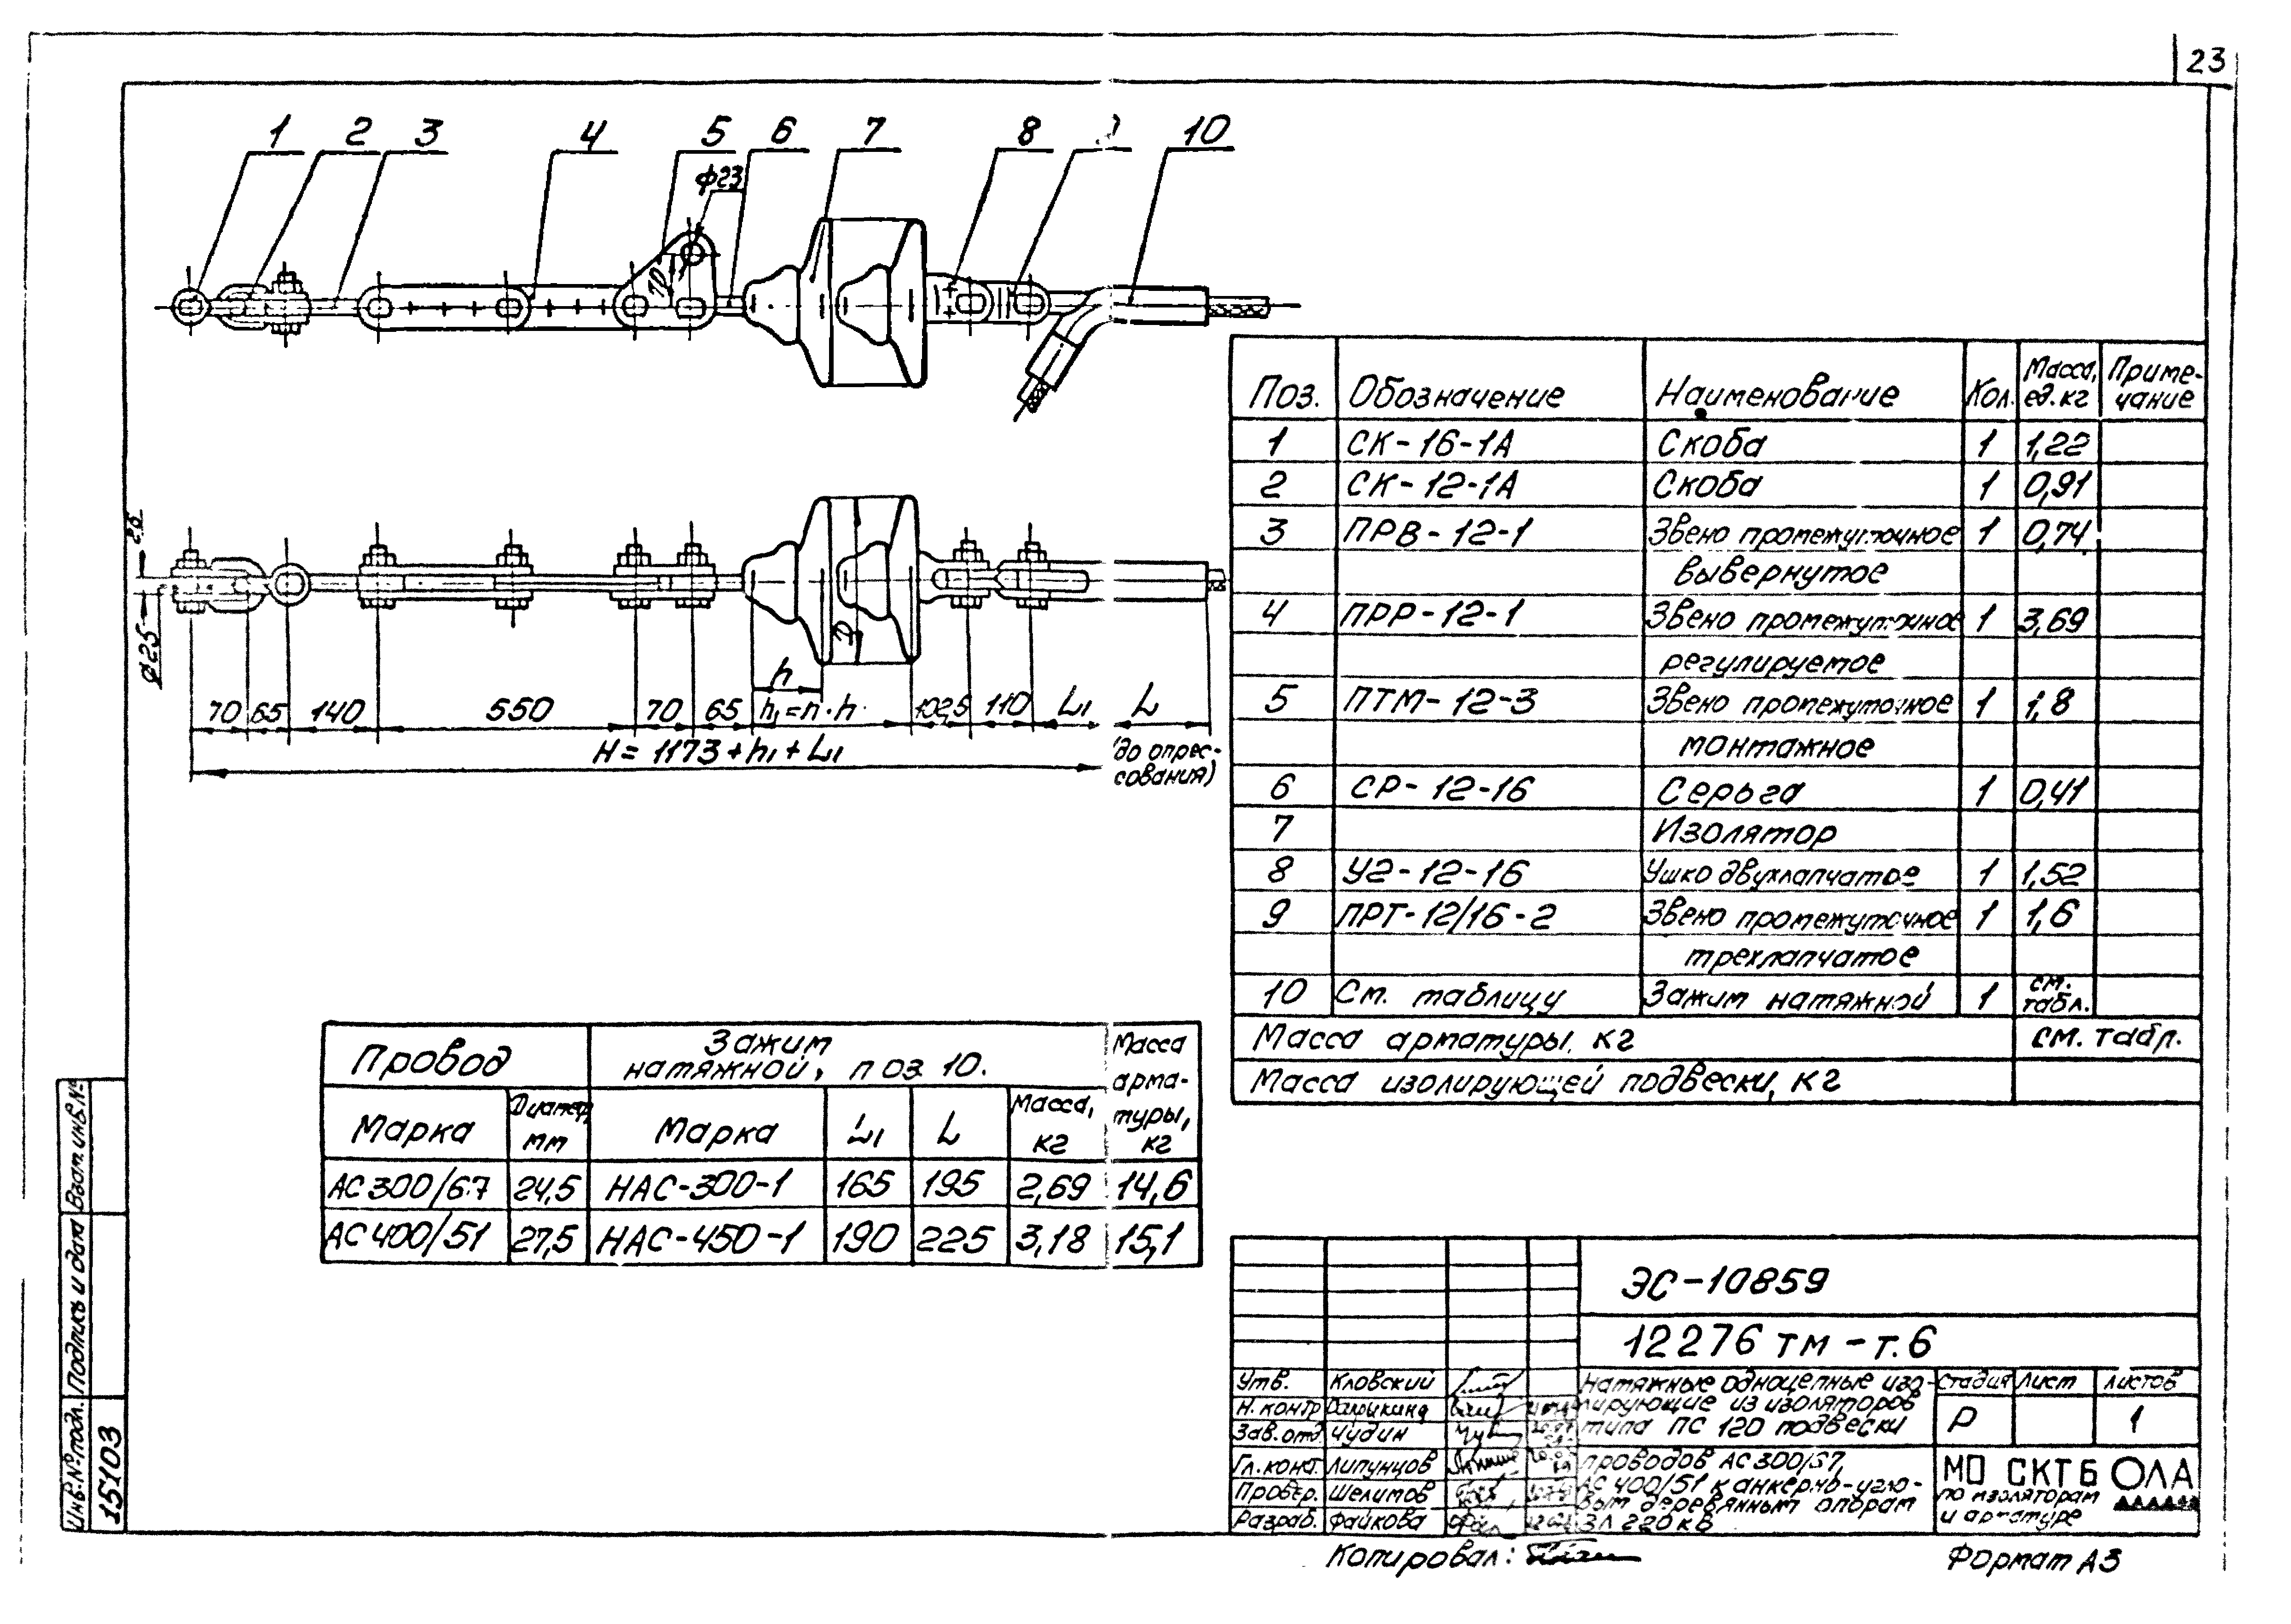 23
1 2 3 4 5 6 7 8 10
ф23
70
26
ф25
D
h
70 65 140 550 70 65 h₁=n·h 102,5 110 L₁ L
H = 1173 + h₁ + L₁
(до опрес-
сования)
Поз. Обозначение Наименование Кол. Масса, ед. кг Приме-чание
1 СК-16-1А Скоба 1 1,22
2 СК-12-1А Скоба 1 0,91
3 ПРВ-12-1 Звено промежуточное 1 0,74
вывернутое
4 ПРР-12-1 Звено промежуточное 1 3,69
регулируемое
5 ПТМ-12-3 Звено промежуточное 1 1,8
монтажное
6 СР-12-16 Серьга 1 0,41
7 Изолятор
8 У2-12-16 Ушко двухлапчатое 1 1,52
9 ПРТ-12/16-2 Звено промежуточное 1 1,6
трехлапчатое
10 См. таблицу Зажим натяжной 1 см. табл.
Масса арматуры, кг см. табл.
Масса изолирующей подвески, кг
Провод Зажим натяжной, поз. 10. Масса арма-туры, кг
Марка Диаметр, мм Марка L₁ L Масса, кг
АС 300/67 24,5 НАС-300-1 165 195 2,69 14,6
АС 400/51 27,5 НАС-450-1 190 225 3,18 15,1
ЭС-10859
12276 тм-т.6
Утв. Кловский
Н. контр
Зав. отд. Чудин
Гл. конт. Липунцов
Провер. Шелитов
Разраб. Файкова
Натяжные одноцепные изо-
лирующие из изоляторов
типа ПС 120 подвески
проводов АС 300/67,
АС 400/51 к анкерно-угло-
вым деревянным опорам
ВЛ 220 кВ
Стадия Лист Листов
Р 1
МО СКТБ ОЛА
по изоляторам
и арматуре
Взам. инв. №
Подпись и дата
Инв. № подл.
15103
Копировал:
Формат А3